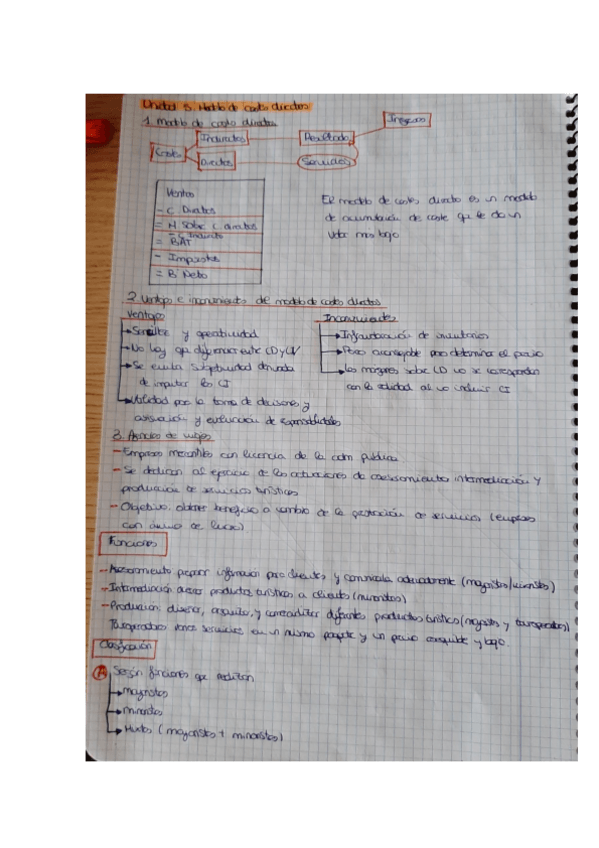 Unidad 5. Modelo de costo directos
1. Modelo de costo directos
Ingresos
Indirectos Resultado
Costes
Directos Servicios
Ventas
- C Directos
= M Sobre C directos
- C Indirecto
= BAT
- Impuestos
= B Neto
El modelo de costes directo es un modelo
de acumulación de coste que te da un
valor mas bajo
2. Ventajas e inconvenientes del modelo de costo directos
Ventajas Inconvenientes
Sencillez y operatividad Infravaloración de inventarios
No hay que diferenciar entre CD y CV Poco aconsejable para determinar el precio
Se evita subjetividad derivada Los margenes sobre CD no se corresponden
de imputar los CI con la realidad al no incluir CI
Utilidad para la toma de decisiones y
asignación y evaluación de responsabilidades
3. Agencias de viajes
- Empresas mercantiles con licencia de la adm publica
- Se dedican al ejercicio de las actuaciones de asesoramiento, intermediación y
producción de servicios turísticos
- Objetivo: obtener beneficio a cambio de la prestación de servicios (empresas
con ánimo de lucro)
Funciones
- Asesoramiento: información para clientes y comunicarla adecuadamente (mayoristas/minoristas)
- Intermediación: acercar productos turísticos a clientes (minoristas)
- Producción: diseñar, organizar, y comercializar diferentes productos turísticos (mayoristas y touroperadores)
Touroperadores: varios servicios en un mismo paquete y un precio asequible y bajo.
Clasificación
A Según funciones que realizan
mayoristas
minoristas
Mixtas (mayoristas + minoristas)